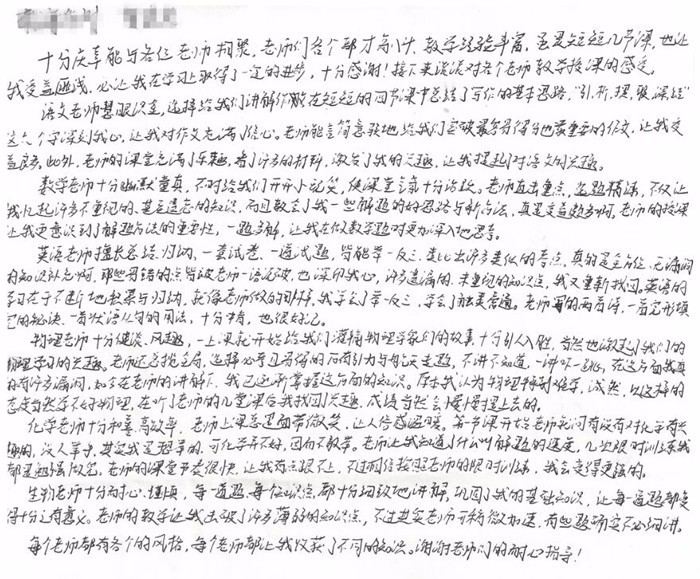 十分庆幸能与各位老师相聚，老师们各个都才高八斗，教学经验丰富，虽是短短几节课，也让
我受益匪浅，必让我在学习上取得了一定的进步，十分感谢！接下来谈谈对各个老师教学授课的感受。
语文老师慧眼识金，选择给我们讲解作文在短短的四节课中总结了写作的基本思路，"引、析、理、联、深、结"
这六个字深刻我心，让我对作文充满了信心。老师能言简意赅地给我们突破最容易得分也最重要的作文，让我受
益良多。此外，老师的课堂充满了乐趣，看了许多的材料，激发了我的兴趣，让我提起对语文的兴趣。
数学老师十分幽默童真，不时给我们开开小玩笑，使课堂气氛十分活跃。老师直击重点，选题精满，不仅让
我忆起许多不重视的、甚至遗忘的知识，而且教会了我一些解题的好思路与新方法，真是受益颇多啊。老师的授课
让我更意识到了解题方法的重要性，一题多解，让我在做数学题时更加深入地思考。
英语老师擅长总结、归纳，一套试卷、一道试题，皆能举一反三，类比出许多类似的考点，真的是全方位、无漏洞
的知识补充啊，那些易错的点皆被老师一语说破，也深印我心，许多遗漏的、未重视的知识点，我又重新找回，英语的
学习在于不断地积累与归纳，就像老师做的那样，我学会了举一反三，学会了触类旁通。老师写的两首诗，一首完形填
空的秘诀，一首状语从句的用法，十分丰富，也很好记。
物理老师十分健谈、风趣，一上课就开始给我们灌输物理学家们的故事，十分引人入胜，自然也激起了我们的
物理学习的兴趣。老师还总揽全局，选择必考且易得的万有引力与每天走题，不讲不知道，一讲吓一跳，在这方面我真
的有许多漏洞，如今在老师的讲解下，我已逐渐掌握这方面的知识。原本我认为物理特别难学，诚然，以这样的
态度自然学不好物理，在听了老师的几堂课后我找回兴趣，成绩自然会慢慢提上去的。
化学老师十分和善、高效率，老师上课总是面带微笑，让人倍感温暖，每节课开始老师先问有没有对化学有兴
趣的，没人举手，其实我是想举的，可化学并不好，因而不敢举。老师让我知道了什么叫解题的速度，几次限时训练我
都是勉强做完，老师的课堂节奏很快，让我有点跟不上，不过相信按照老师的限时训练，我会变得更强的。
生物老师十分耐心、谨慎，每一道题、每个知识点都十分细致地讲解，巩固了我的基础知识，让每一道题都变
得十分之有意义。老师的教学让我击破了许多薄弱的知识点，不过其实老师可稍微加速，有些题确实不必细讲。
每个老师都有各个的风格，每个老师都让我收获了不同的知识。谢谢老师们的耐心指导！